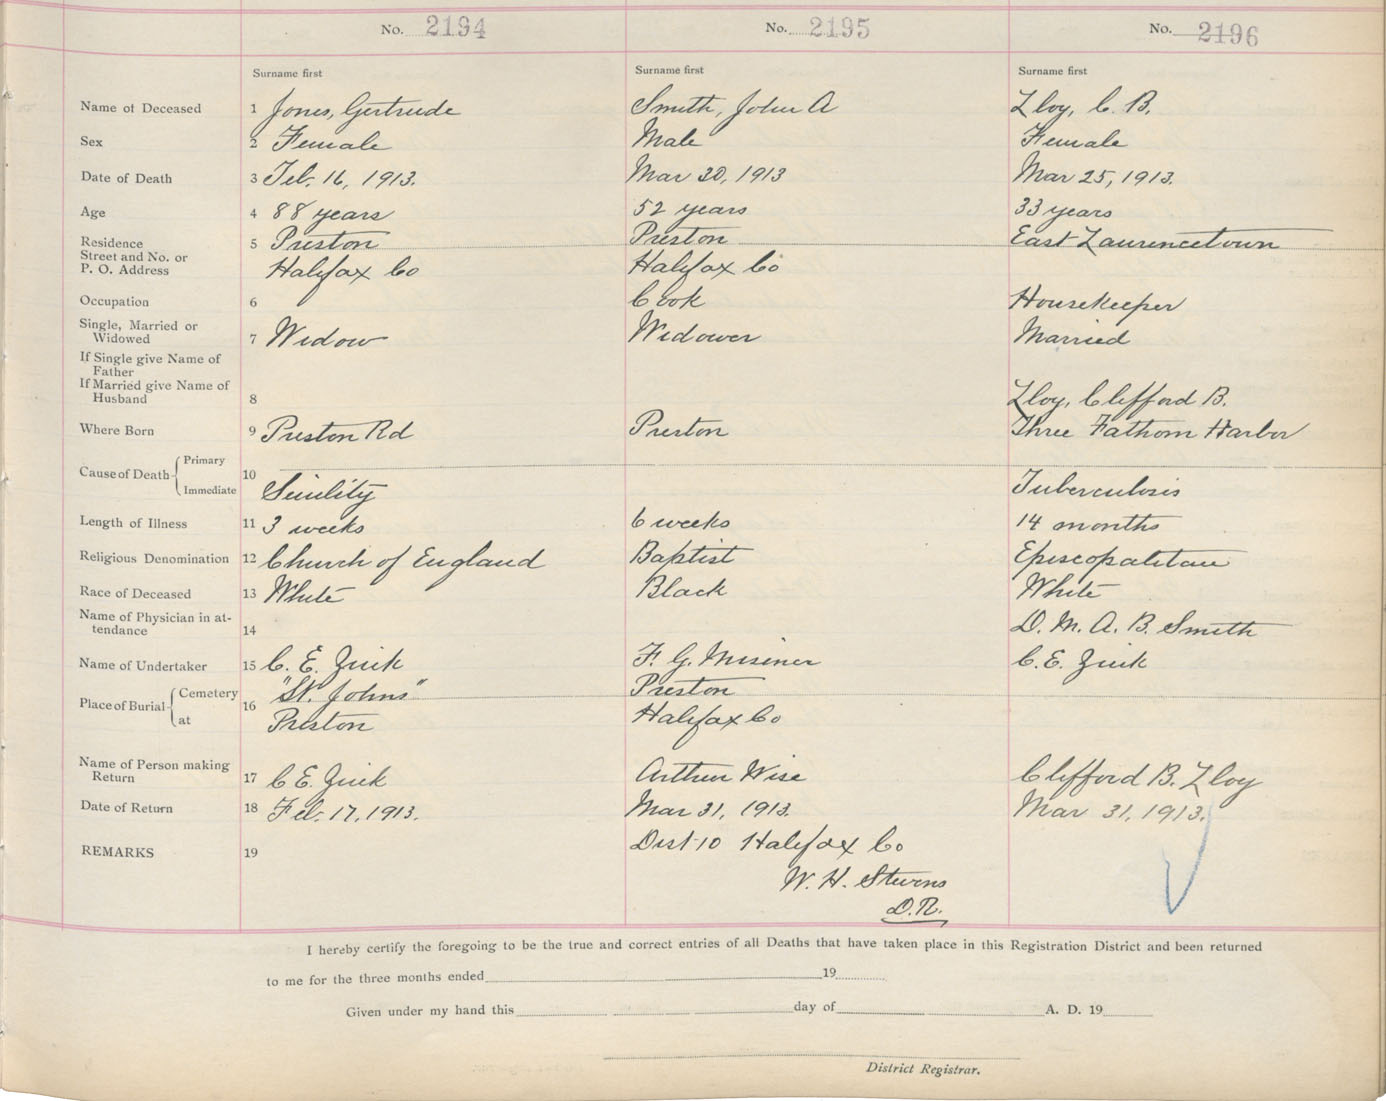 No. 2194 No. 2195 No. 2196
Surname first Surname first Surname first
Name of Deceased 1 Jones, Gertrude Smith, John A Zloy, C. B.
Sex 2 Female Male Female
Date of Death 3 Feb. 16, 1913. Mar 30, 1913 Mar 25, 1913.
Age 4 88 years 52 years 33 years
Residence 5 Preston Preston East Laurencetown
Street and No. or
P. O. Address Halifax Co Halifax Co
Occupation 6 Cook Housekeeper
Single, Married or
Widowed 7 Widow Widower Married
If Single give Name of
Father
If Married give Name of
Husband 8 Zloy, Clifford B.
Where Born 9 Preston Rd Preston Three Fathom Harbor
Cause of Death Primary 10
Immediate Senility Tuberculosis
Length of Illness 11 3 weeks 6 weeks 14 months
Religious Denomination 12 Church of England Baptist Episcopalitan
Race of Deceased 13 White Black White
Name of Physician in at-
tendance 14 D. M. A. B. Smith
Name of Undertaker 15 C. E. Zink F. G. Misener C. E. Zink
Place of Burial Cemetery 16 "St. Johns" Preston
at Preston Halifax Co
Name of Person making
Return 17 C E. Zink Arthur Wise Clifford B. Zloy
Date of Return 18 Feb. 17, 1913. Mar 31, 1913. Mar 31, 1913.
REMARKS 19 Dist 10 Halifax Co
W. H. Stevens
D.R.
I hereby certify the foregoing to be the true and correct entries of all Deaths that have taken place in this Registration District and been returned
to me for the three months ended 19
Given under my hand this day of A. D. 19
District Registrar.